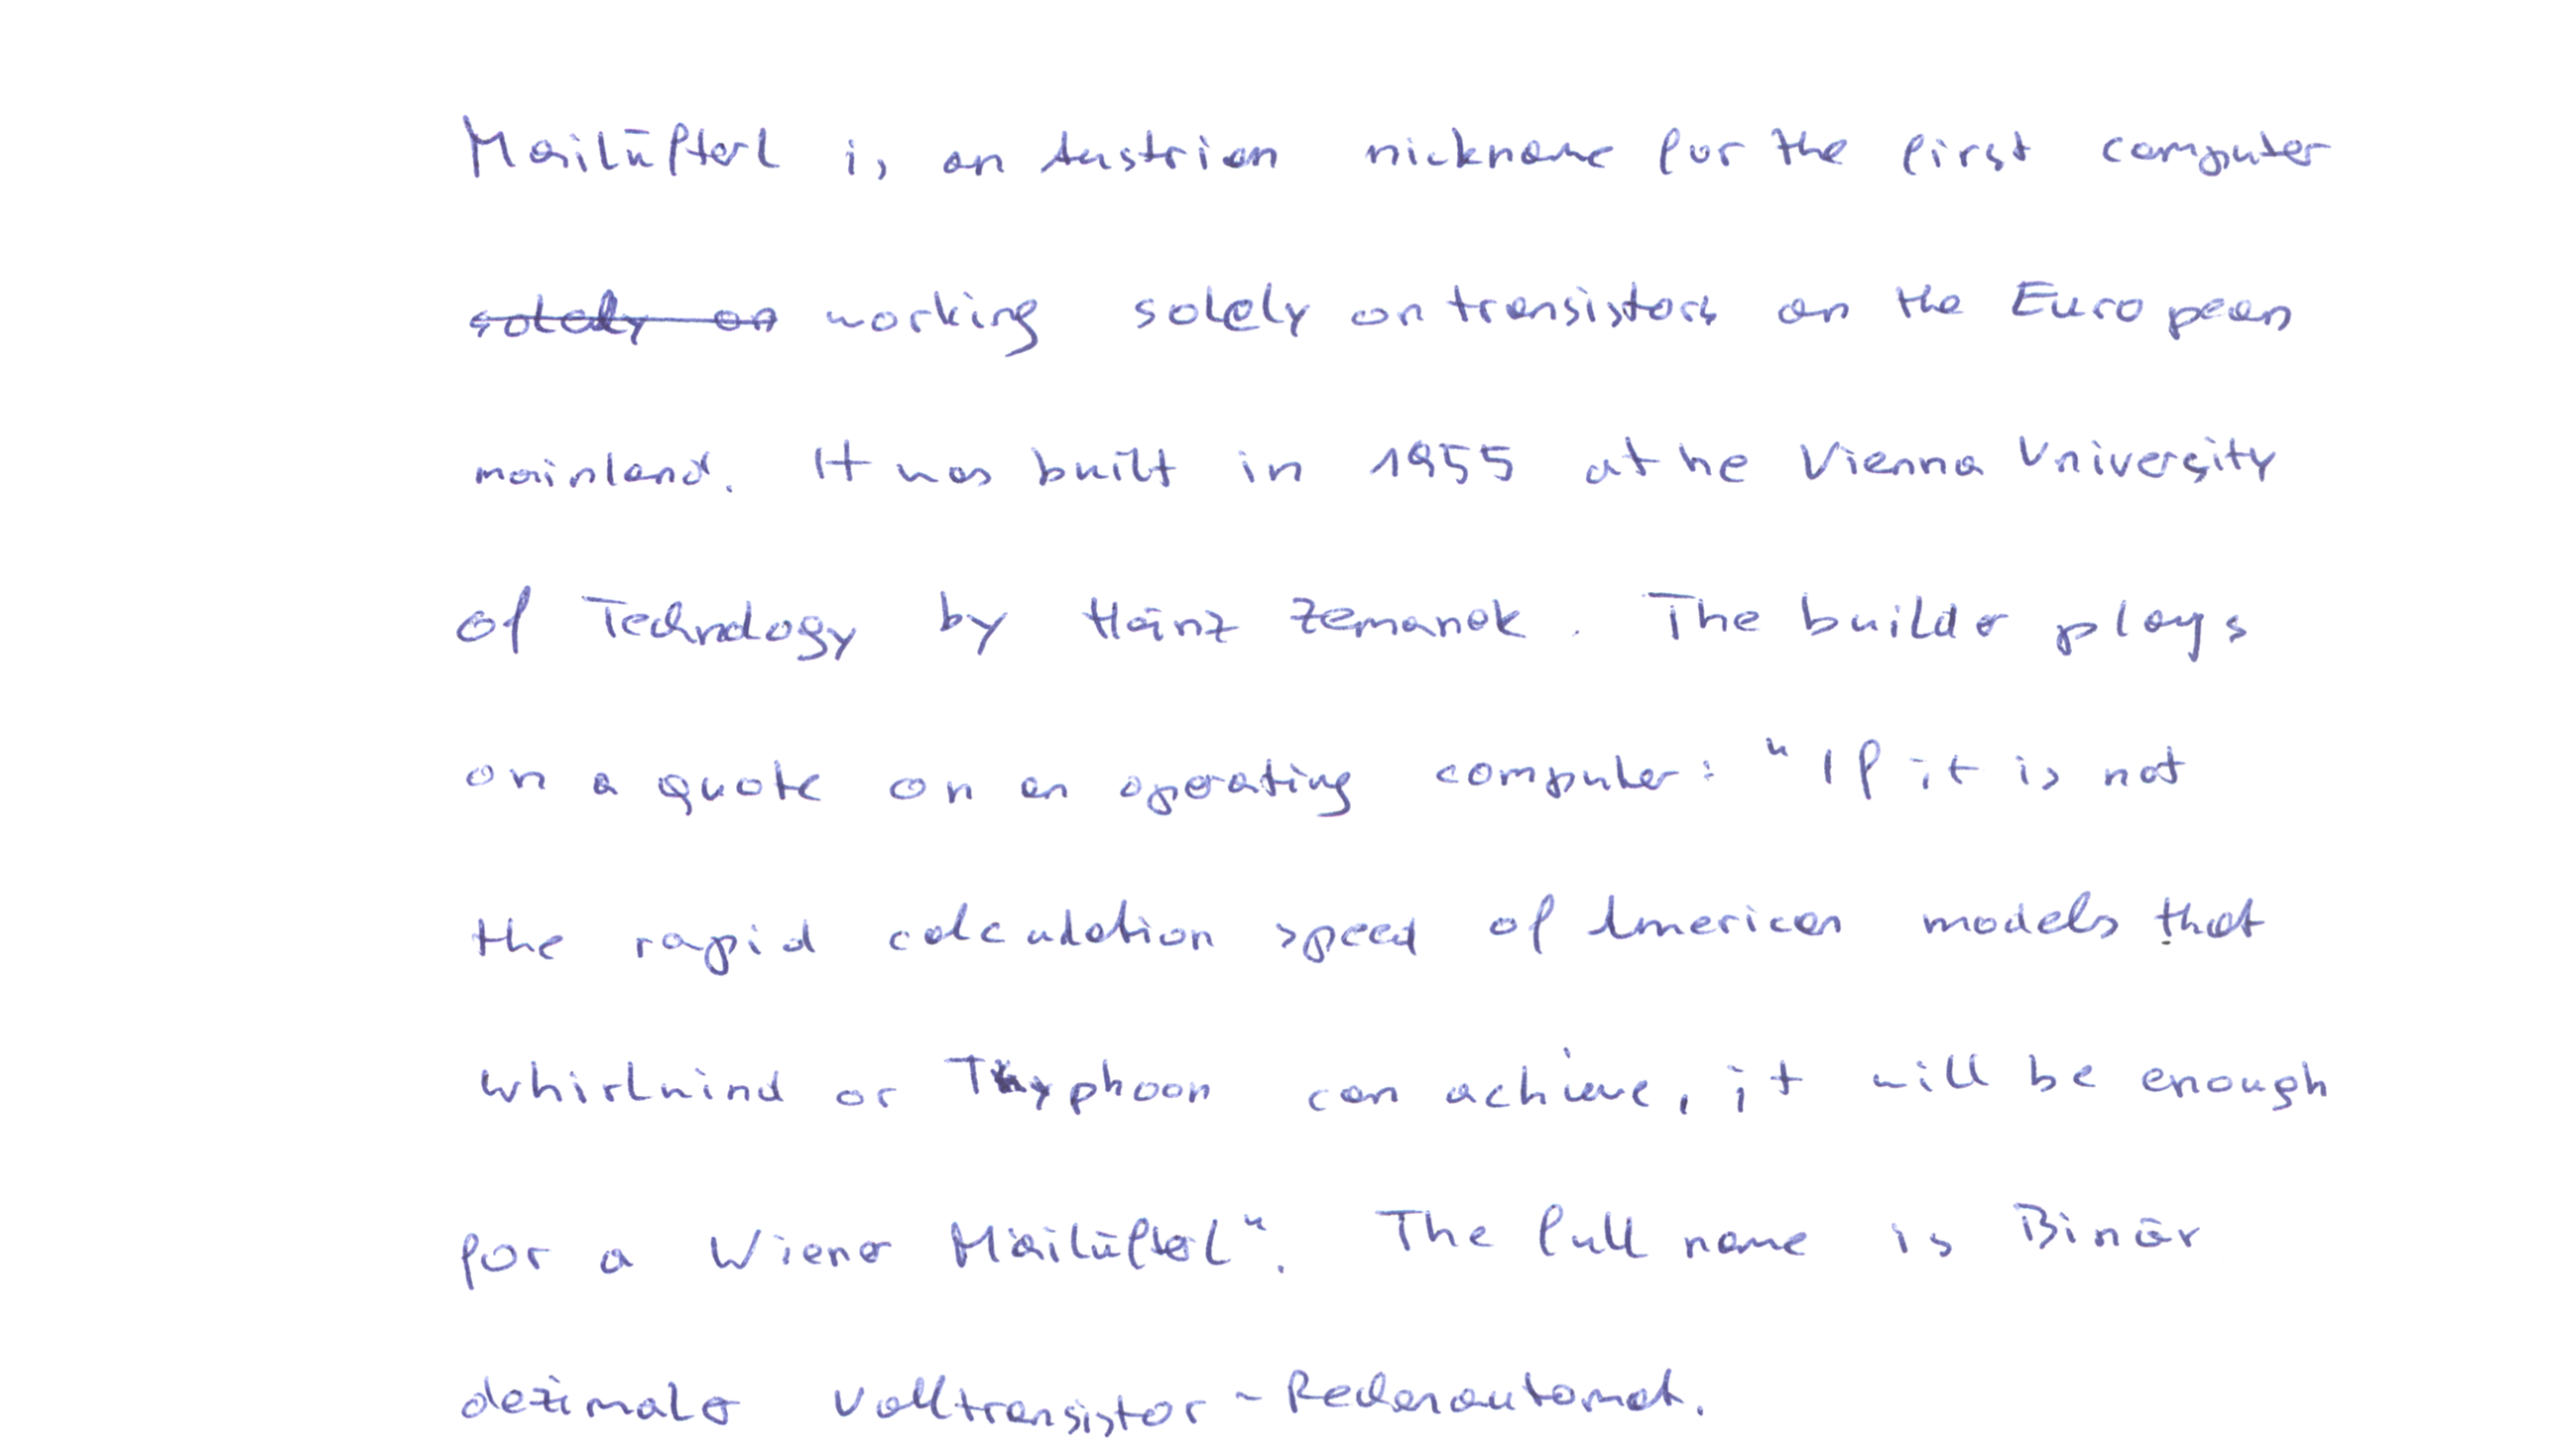 Mailüfterl is an Austrian nickname for the first computer
solely on working solely on transistors on the European
mainland. It was built in 1955 at he Vienna University
of Technology by Heinz Zemanek. The builder plays
on a quote on an operating computer: "If it is not
the rapid calculation speed of American models that
whirlwind or Typhoon can achieve, it will be enough
for a Wiener Mailüfterl". The full name is Binär
dezimaler Volltransistor-Rechenautomat.